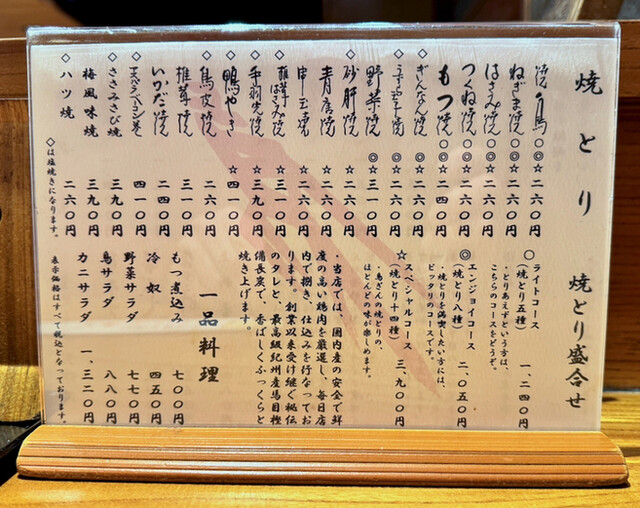 焼とり
焼き鳥 〇◎☆ 二六〇円
ねぎま焼 〇◎☆ 二六〇円
はさみ焼 〇◎☆ 二六〇円
つくね焼 〇◎☆ 二六〇円
もつ焼 〇◎☆ 二四〇円
◇ぎんなん焼 ◎☆ 二六〇円
◇うずら玉子焼 ◎☆ 二六〇円
野菜巻 ◎☆ 三一〇円
◇砂肝焼 ☆ 二六〇円
青唐焼 ☆ 二六〇円
串玉焼 ☆ 二六〇円
◇椎茸はさみ焼 ☆ 三一〇円
◇手羽先焼 ☆ 三九〇円
◇鴨やき ☆ 四一〇円
◇鳥皮焼 二六〇円
椎茸焼 三一〇円
いかだ焼 二四〇円
◇アスパラベーコン巻 四一〇円
◇ささみさび焼 三九〇円
梅風味焼 三九〇円
◇ハツ焼 二六〇円
◇は塩焼きになります。
焼とり盛合せ
〇ライトコース
(焼とり五種) 一、二四〇円
・とりあえずという方は、
こちらのコースをどうぞ。
◎エンジョイコース
(焼とり八種) 二、〇五〇円
・焼とりを満喫したい方には、
ピッタリのコースです。
☆スペシャルコース
(焼とり十四種) 三、九〇〇円
・鳥ぎんの焼とりの、
ほとんどの味が楽しめます。
・当店では、国内産の安全で鮮
度の高い鶏肉を厳選し、毎日店
内で捌き、仕込みを行なってお
ります。創業以来受け継ぐ秘伝
のタレと、最高級紀州産馬目樫
備長炭で、香ばしくふっくらと
焼き上げます。
一品料理
もつ煮込み 七〇〇円
冷奴 四五〇円
野菜サラダ 七七〇円
鳥サラダ 八八〇円
カニサラダ 一、三二〇円
表示価格はすべて税込となっております。